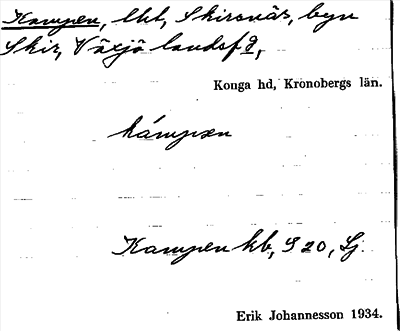 Kampen, lht, Skirsnäs, byn
Skir, Växjö landsf g,
Konga hd, Kronobergs län.
kámpæn
Kampen kb, S 20, Lj.
Erik Johannesson 1934.